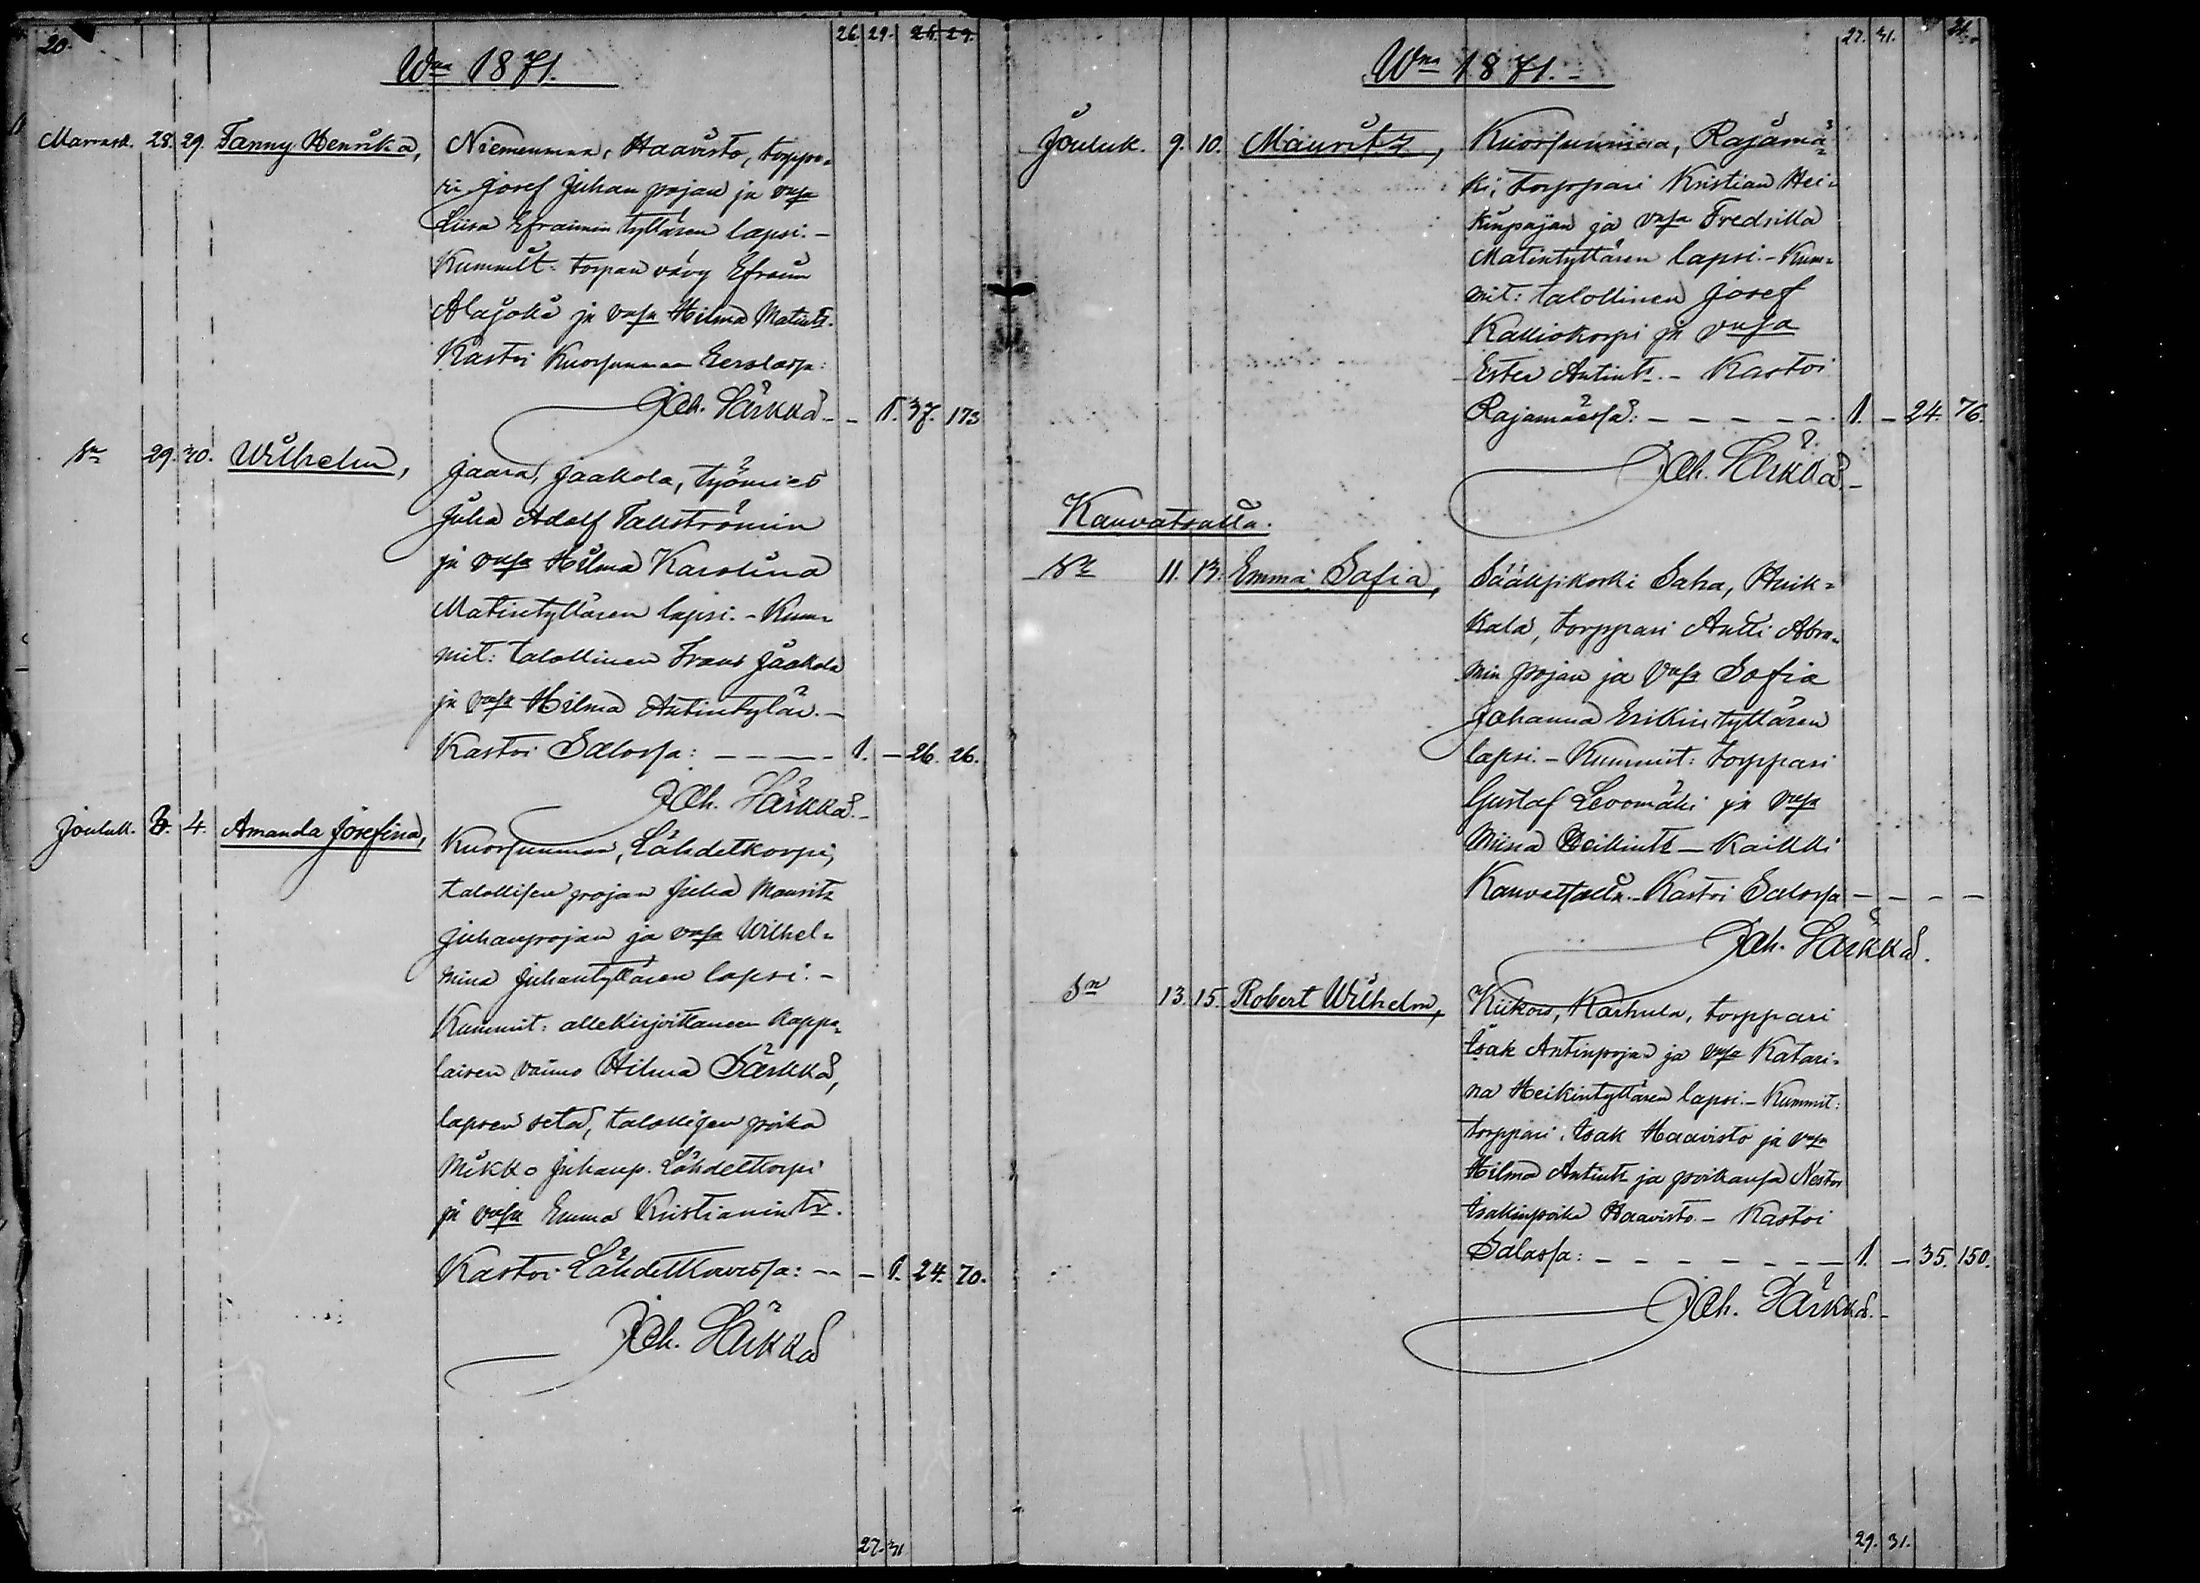 20.
26. 29. 24. 29.
Wna 1871.
Marrask. 28. 29. Fanny Henrika, Niemenmaa, Haavisto, torppa-
ri Josef Juhan pojan ja vmsa
Liisa Efraimin tyttären lapsi. -
Kummit: torpan vävy Efraim
Alajoki ja vmsa Hilma Matints.
Kastoi Kuorsunmaa Eerolassa:
Joh. Särkkä - - 1. 37. 173
Sn 29. 30. Wilhelm, Jaara, Jaakola, työmies
Juha Adolf Tallströmin
ja vmsa Hilma Karolina
Matintyttären lapsi. - Kum-
mit: talollinen Frans Jaakola
ja vmsa Hilma Antintytär. -
Kastoi Salossa: - - - - 1. - 26. 26.
Joh. Särkkä. -
Jouluk. 3. 4. Amanda Josefina, Kuorsunmaa, Lähdetkorpi,
talollisen pojan Juha Maurits
Juhanpojan ja vmsa Wilhel-
mina Juhantyttären lapsi. -
Kummit: allekirjoittaneen kappa-
laisen vaimo Hilma Särkkä,
lapsen setä, talollisen poika
Mikko Juhanp. Lähdetkorpi
ja vmsa Emma Kristianints.
Kastoi Lähdetkorvessa: - - - 1. 24. 70.
Joh. Särkkä
27. 31
27. 31. 21.
Wna 1871. -
Jouluk. 9. 10. Maurits, Kuorsunmaa, Rajamä-
ki, torppari Kristian Hei-
kinpojan ja vmsa Fredrika
Matintyttären lapsi. - Kum-
mit: talollinen Josef
Kalliokorpi ja vmsa
Ester Antints. - Kastoi
Rajamäessä: - - - - - - 1. - 24. 76.
Joh. Särkkä. -
Kauvatsalla.
Sn 11. 13. Emma Sofia, Sääksjkoski Saha, Huik-
kala, torppari Antti Abra-
min pojan ja vmsa Sofia
Johanna Erikintyttären
lapsi. - Kummit: torppari
Gustaf Levomäki ja vmsa
Miina Heikints - kaikki
Kauvatsalla. - Kastoi Salossa - - - -
Joh. Särkkä.
Sn 13. 15. Robert Wilhelm, Kiikois, Karhula, torppari
Isak Antinpojan ja vmsa Katari-
na Heikintyttären lapsi. - Kummit:
torppari Isak Haavisto ja vmsa
Hilma Antints ja poikansa Nestor
Isakinpoika Haavisto. - Kastoi
Salossa: - - - - - - - 1. - 35. 150.
Joh. Särkkä. -
29. 31.